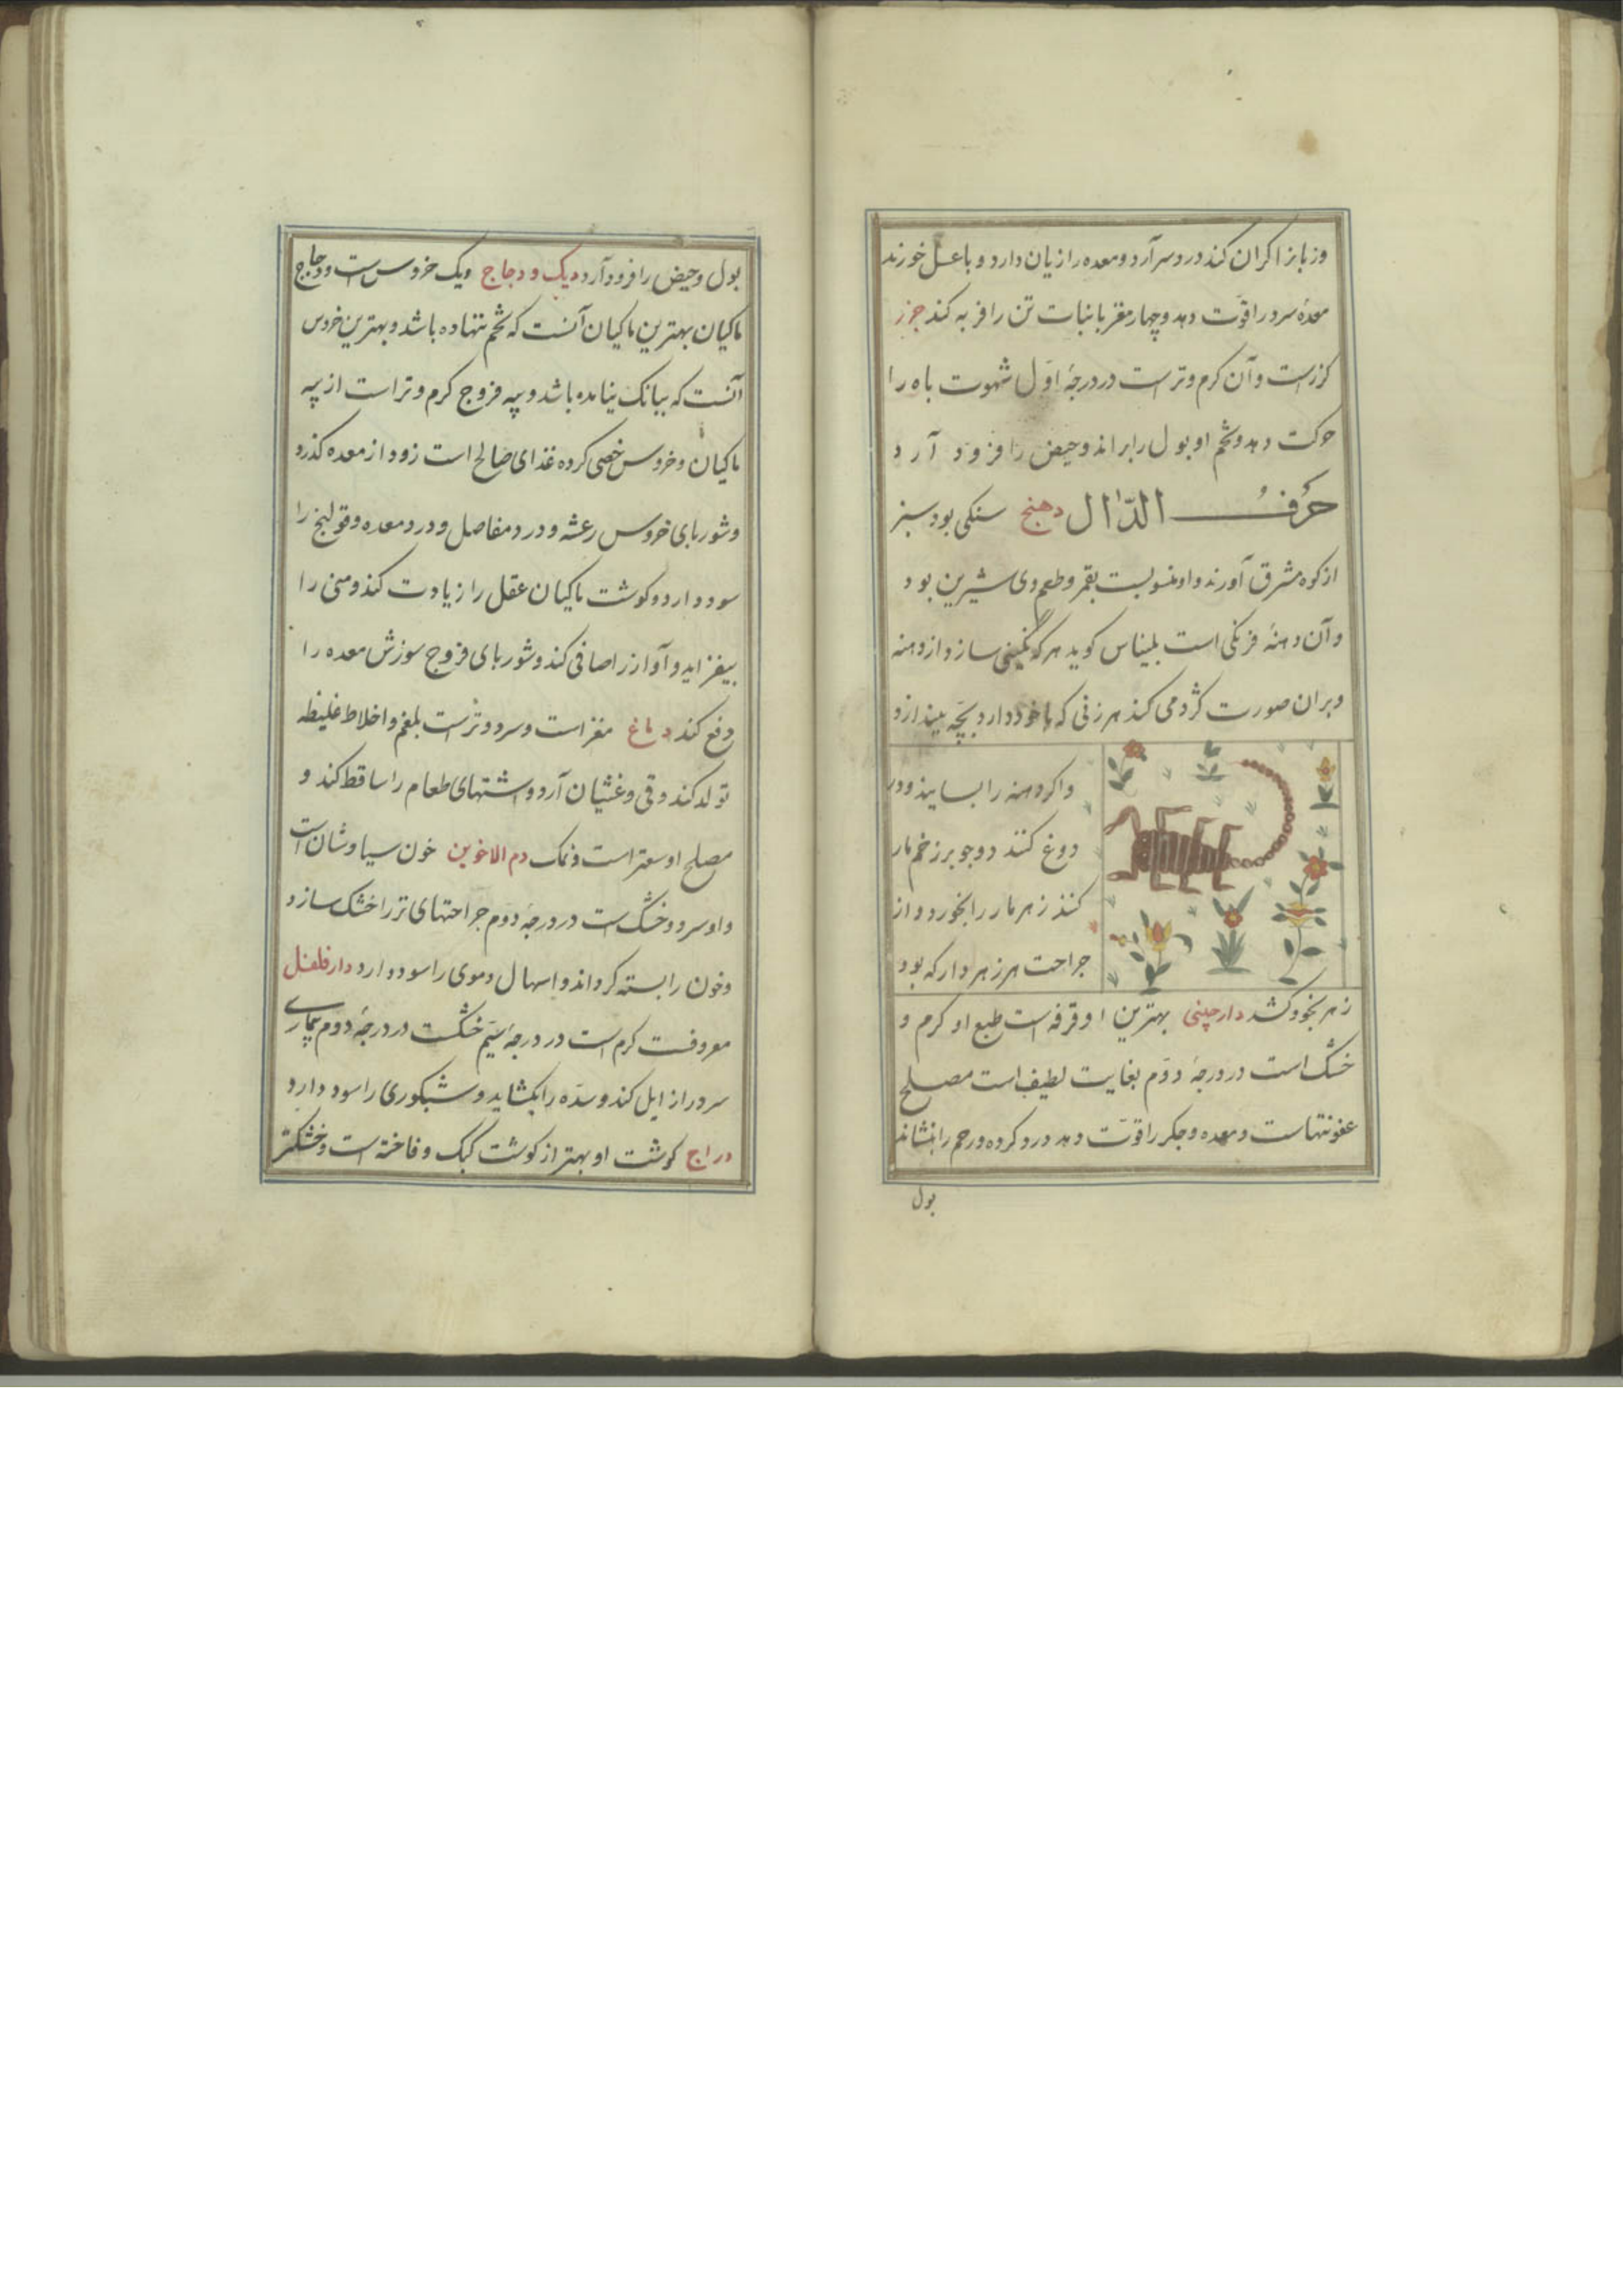 وزبانرا کران کند دردسر آرد ومعده را زیان دارد و با عسل خورند
معدهٔ سرد را قوّت دهد وچهار مغز با نبات تن را فربه کند جزر
کزرست وآن کرم وترست در درجهٔ اوّل شهوت باه را
حرکت دهد وتخم او بول را براند وحیض را فرود آرد
حرف الدّال دهنج سنکی بود سبز
از کوه مشرق آورند واو منسوبست بقمر وطعم وی شیرین بود
وآن دهنهٔ فرنکی است بلیناس کوید هرکه نکینی سازد از دهنه
وبران صورت کژدمی کند هر زنی که با خود دارد بچّه بیندازد
واکر دهنه را بسایند ودر
دوغ کنند دوجو بر زخم مار
کنند زهر مار را بخورد واز
جراحت هر زهر دار که بود
زهر بخود کشد دارچینی بهترین او قرفه است طبع او کرم و
خشک است در درجهٔ دوّم بغایت لطیف است مصلح
عفونتهاست ومعده وجکر را قوّت دهد درد کرده ورحم را بنشاند
بول
بول وحیض را فرود آرد دیک ودجاج دیک خروس است ودجاج
ماکیان بهترین ماکیان آنست که تخم ننهاده باشد وبهترین خروس
آنست که ببانک نیامده باشد وپیه فروج کرم وتر است از پیه
ماکیان وخروس خصی کرده غذای صالح است زود از معده کذرد
وشوربای خروس رعشه ودرد مفاصل ودرد معده وقولنج را
سود دارد وکوشت ماکیان عقل را زیادت کند ومنی را
بیفزاید وآواز را صافی کند وشوربای فروج سوزش معده را
دفع کند دماغ مغز است وسرد وترست بلغم واخلاط غلیظه
تولد کند وقی وغثیان آرد واشتهای طعام را ساقط کند و
مصلح او سعتر است ونمک دم الاخوین خون سیاوشان است
واو سرد وخشک است در درجهٔ دوّم جراحتهای تر را خشک سازد
وخون را بسته کرداند واسهال دموی را سود دارد دارفلفل
معروفست کرم است در درجهٔ سیّم خشکست در درجهٔ دوّم بیماری
سرد را زایل کند وسدّه را بکشاید وشبکوری را سود دارد
دراج کوشت او بهتر از کوشت کبک وفاخته است وخشکتر